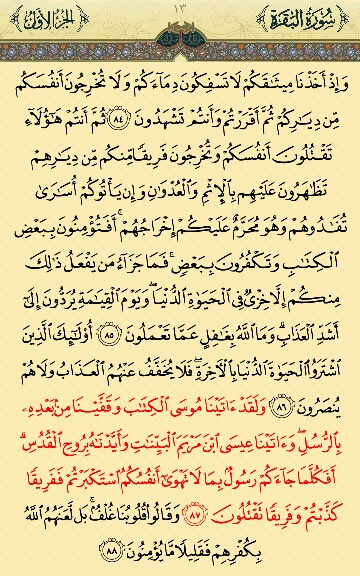 سُورَةُ البَقَرَةِ ١٣ الجزء الأول
وَإِذْ أَخَذْنَا مِيثَـٰقَكُمْ لَا تَسْفِكُونَ دِمَآءَكُمْ وَلَا تُخْرِجُونَ أَنفُسَكُم
مِّن دِيَـٰرِكُمْ ثُمَّ أَقْرَرْتُمْ وَأَنتُمْ تَشْهَدُونَ ٨٤ ثُمَّ أَنتُمْ هَـٰٓؤُلَآءِ
تَقْتُلُونَ أَنفُسَكُمْ وَتُخْرِجُونَ فَرِيقًا مِّنكُم مِّن دِيَـٰرِهِمْ
تَظَـٰهَرُونَ عَلَيْهِم بِٱلْإِثْمِ وَٱلْعُدْوَٰنِ وَإِن يَأْتُوكُمْ أُسَـٰرَىٰ
تُفَـٰدُوهُمْ وَهُوَ مُحَرَّمٌ عَلَيْكُمْ إِخْرَاجُهُمْ ۚ أَفَتُؤْمِنُونَ بِبَعْضِ
ٱلْكِتَـٰبِ وَتَكْفُرُونَ بِبَعْضٍ ۚ فَمَا جَزَآءُ مَن يَفْعَلُ ذَٰلِكَ
مِنكُمْ إِلَّا خِزْىٌ فِى ٱلْحَيَوٰةِ ٱلدُّنْيَا ۖ وَيَوْمَ ٱلْقِيَـٰمَةِ يُرَدُّونَ إِلَىٰٓ
أَشَدِّ ٱلْعَذَابِ ۗ وَمَا ٱللَّهُ بِغَـٰفِلٍ عَمَّا تَعْمَلُونَ ٨٥ أُو۟لَـٰٓئِكَ ٱلَّذِينَ
ٱشْتَرَوُا۟ ٱلْحَيَوٰةَ ٱلدُّنْيَا بِٱلْـَٔاخِرَةِ ۖ فَلَا يُخَفَّفُ عَنْهُمُ ٱلْعَذَابُ وَلَا هُمْ
يُنصَرُونَ ٨٦ وَلَقَدْ ءَاتَيْنَا مُوسَى ٱلْكِتَـٰبَ وَقَفَّيْنَا مِنۢ بَعْدِهِۦ
بِٱلرُّسُلِ ۖ وَءَاتَيْنَا عِيسَى ٱبْنَ مَرْيَمَ ٱلْبَيِّنَـٰتِ وَأَيَّدْنَـٰهُ بِرُوحِ ٱلْقُدُسِ ۗ
أَفَكُلَّمَا جَآءَكُمْ رَسُولٌۢ بِمَا لَا تَهْوَىٰٓ أَنفُسُكُمُ ٱسْتَكْبَرْتُمْ فَفَرِيقًا
كَذَّبْتُمْ وَفَرِيقًا تَقْتُلُونَ ٨٧ وَقَالُوا۟ قُلُوبُنَا غُلْفٌۢ ۚ بَل لَّعَنَهُمُ ٱللَّهُ
بِكُفْرِهِمْ فَقَلِيلًا مَّا يُؤْمِنُونَ ٨٨